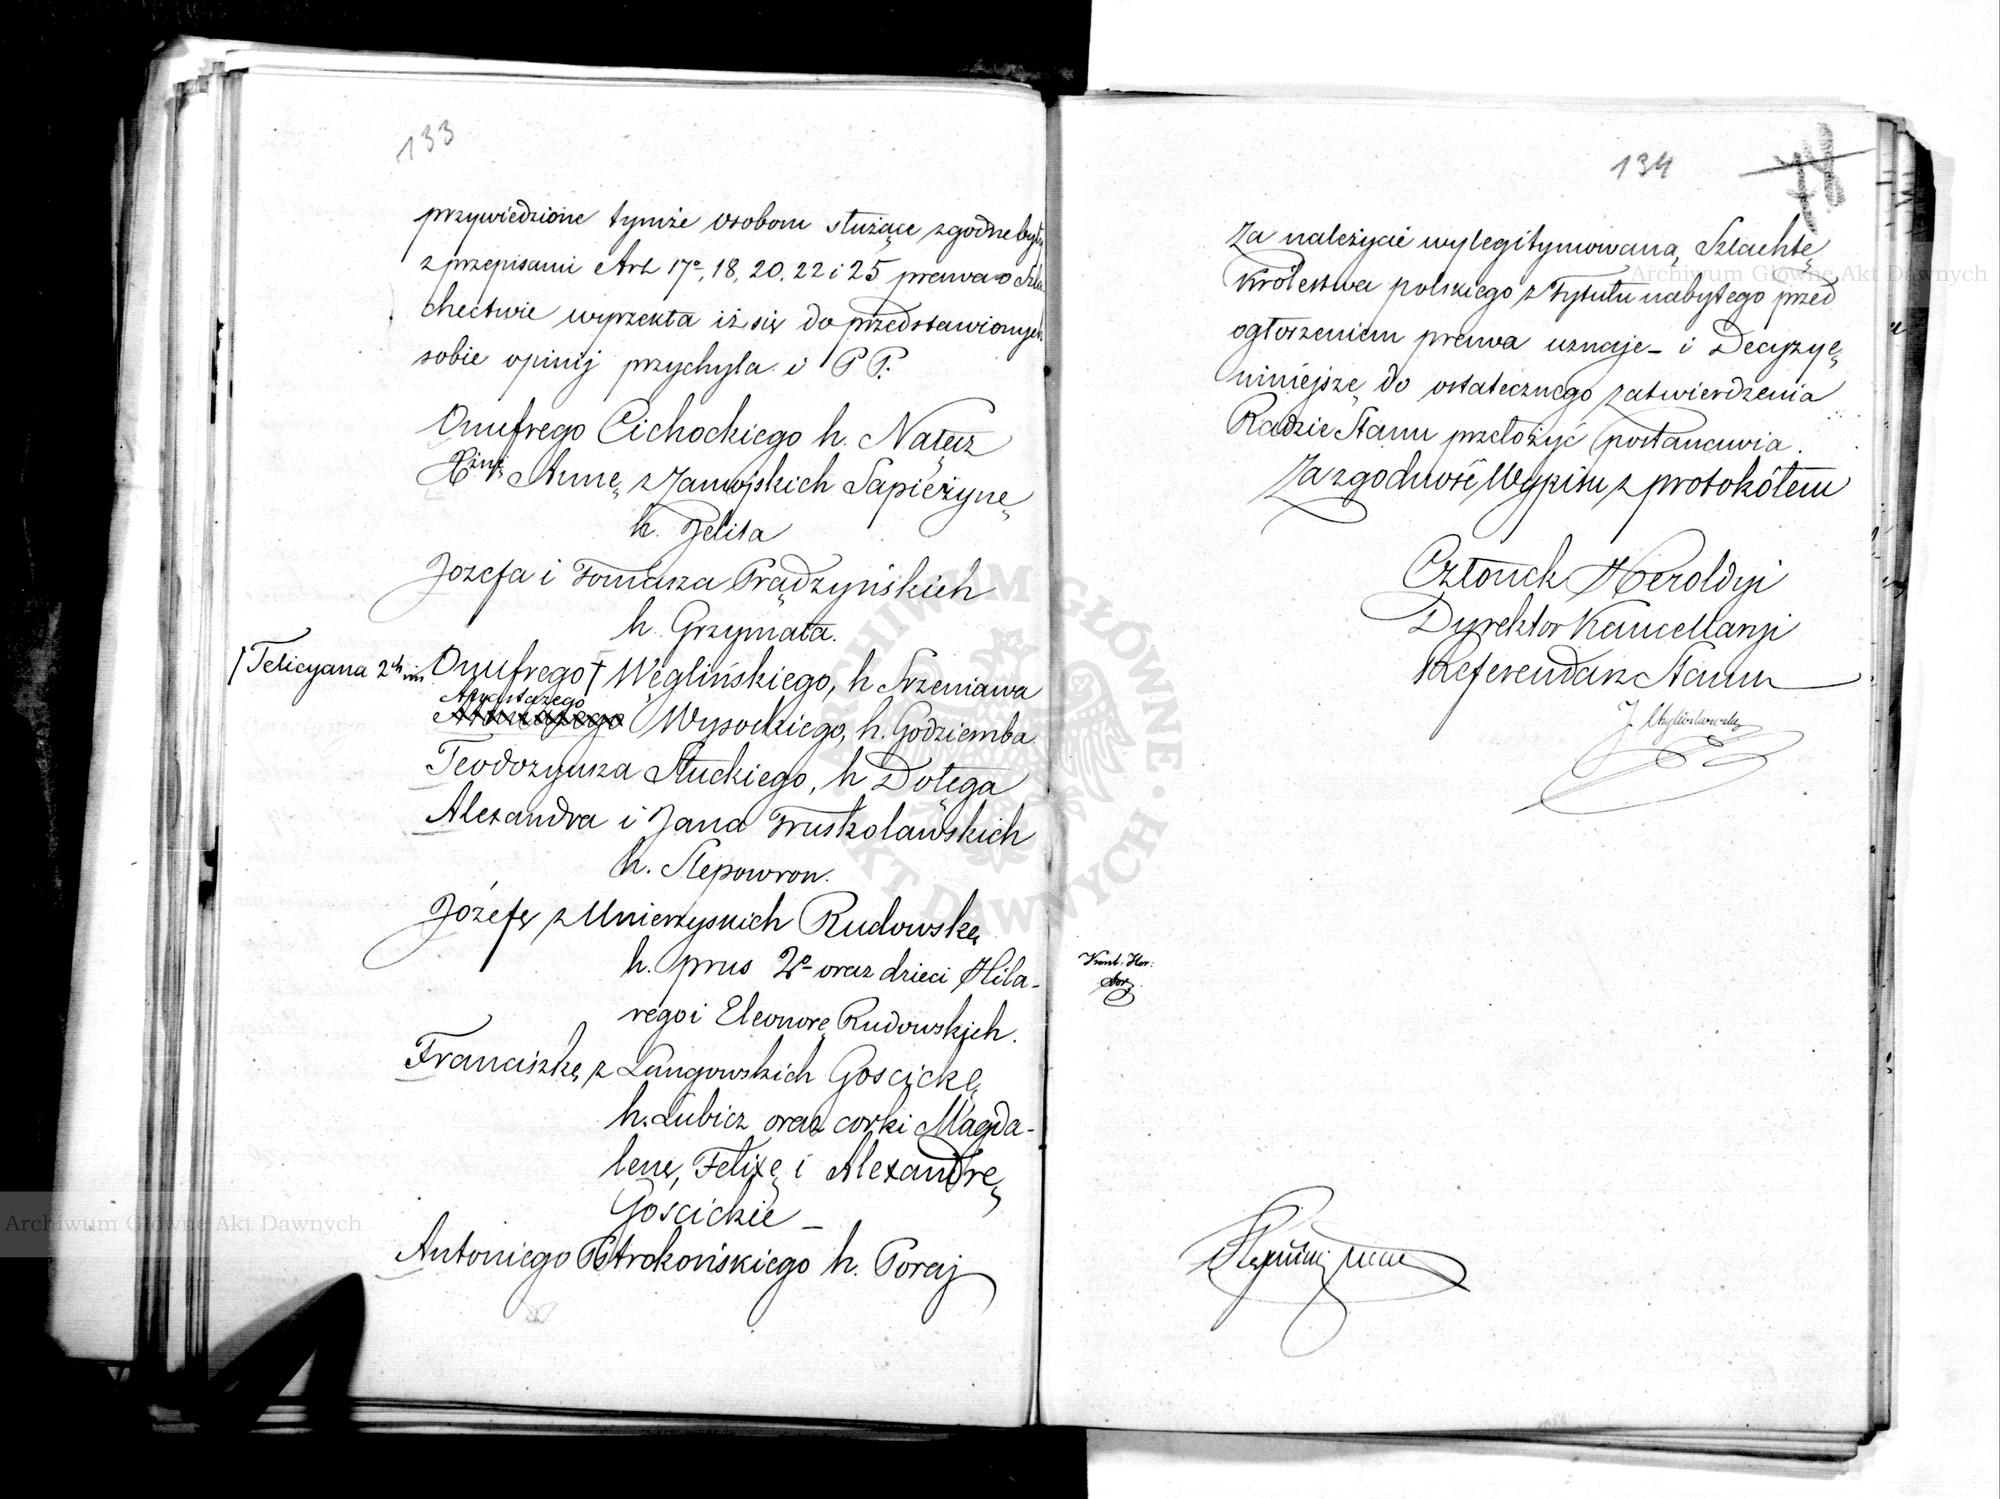 133
przywiedzione tymże osobom służące zgodne były
z przepisami Art 17º, 18, 20, 22 i 25 prawa o Szla-
chectwie wyrzekła iż się do przedstawionych
sobie opinij przychyla i PP.
Onufrego Cichockiego h. Nałęcz
Annę z Zamojskich Sapieżynę
h. Jelita
Jozefa i Tomasza Prądzyńskich
h. Grzymała.
/ Felicyana 2ch im
Onufrego † Węglińskiego, h Szreniawa
Wysockiego, h. Godziemba
Teodozyusza Słuckiego, h Dołęga
Alexandra i Jana Truskolawskich
h. Slepowron.
Józefę z Mnierzyskich Rudowską
h. prus 2º oraz dzieci Hila-
rego i Eleonorę Rudowskich.
Franciszkę z Lungowskich Goscicką
h. Lubicz oraz corki Magda-
lenę, Felixę i Alexandrę
Gościckie –
Antoniego Potrokońskiego h. Poraj
134
Za należycie wylegitymowaną Szlachtę
Królestwa polskiego z Tytułu nabytego przed
ogłoszeniem prawa uznaje – i Decyzyę
niniejszę do ostatecznego zatwierdzenia
Radzie Stanu przełożyć postanawia.
Za zgodność Wypisu z protokółem
Członek Heroldyi
Dyrektor Kancellaryi
Referendarz Stanu
Archiwum Główne Akt Dawnych
Archiwum Główne Akt Dawnych
ARCHIWUM GŁÓWNE AKT DAWNYCH